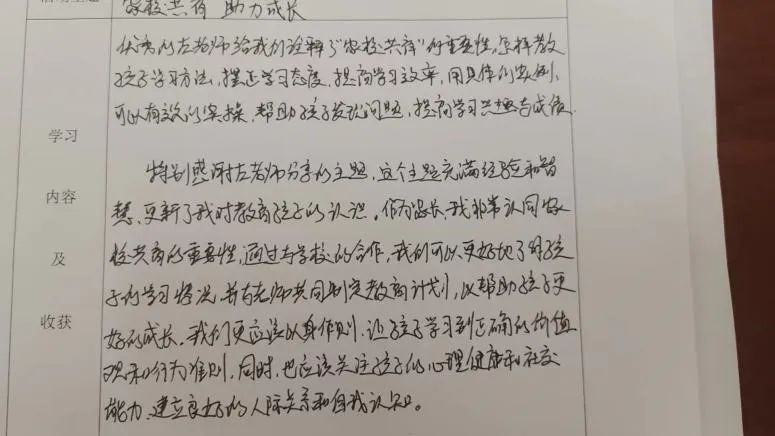 家校共育 助力成长
优秀的左老师给我们诠释了“家校共育”的重要性,怎样教
孩子学习方法,摆正学习态度,提高学习效率,用具体的案例,
可以有效的实操,帮助孩子发现问题,提高学习兴趣与成绩
学习
内容
及
收获
特别感谢左老师分享的主题,这个主题充满经验和智
慧,更新了我对教育孩子的认识。作为家长,我非常认同家
校共育的重要性,通过与学校的合作,我们可以更好地了解孩
子的学习情况,并与老师共同制定教育计划,以帮助孩子更
好的成长。我们更应该以身作则,让孩子学习到正确的价值
观和行为准则,同时,也应该关注孩子的心理健康和社交
能力,建立良好的人际关系和自我认知。